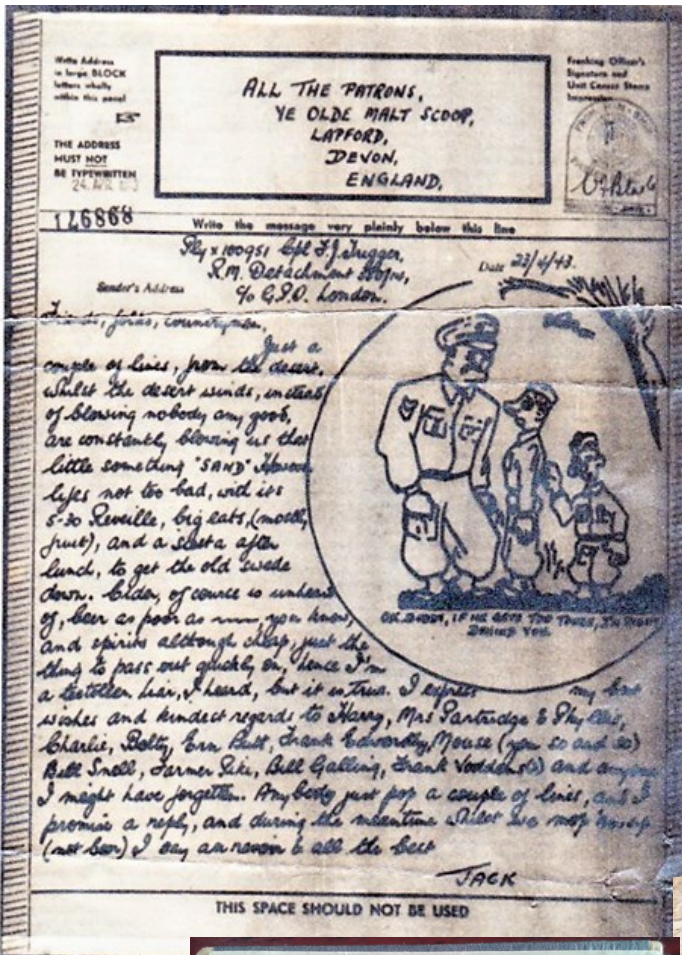 Write Address
in large BLOCK
letters wholly
within this panel
THE ADDRESS
MUST NOT
BE TYPEWRITTEN
24 APR
ALL THE PATRONS,
YE OLDE MALT SCOOP,
LAPFORD,
DEVON,
ENGLAND,
Franking Officer's
Signature and
Unit Censor Stamp
Impression
146868
Write the message very plainly below this line
Ply x 100951 Cpl F.J. Trigger,
R.M. Detachment
c/o G.P.O. London.
Sender's Address
Date 23/4/43.
Friends, folks, countrymen,
Just a
couple of lines, from the desert,
whilst the desert winds, instead
of blowing nobody any good,
are constantly blowing us that
little something "SAND" However
lifes not too bad, with its
5-30 Reveille, big eats, (mostly
fruit), and a siesta after
lunch, to get the old swede
down. Cider, of course is unheard
of, beer as poor as you know,
and spirits although cheap, just the
thing to pass out quickly on, hence I'm
a teetotaller liar, I heard, but it is true. I express my best
wishes and kindest regards to Harry, Mrs Partridge & Phyllis,
Charlie, Bolty, Ern Butt, Frank Edworthy, Mouse (you so and so)
Bill Snell, Farmer Pike, Bill Galling, Frank and anyone
I might have forgotten. Anybody just pop a couple of lines, and I
promise a reply, and during the meantime whilst we mop
(not beer) I say au revoir & all the best
JACK
OK. BUDDY, IF HE GETS TOO TOUGH, I'M RIGHT
BEHIND YOU.
THIS SPACE SHOULD NOT BE USED